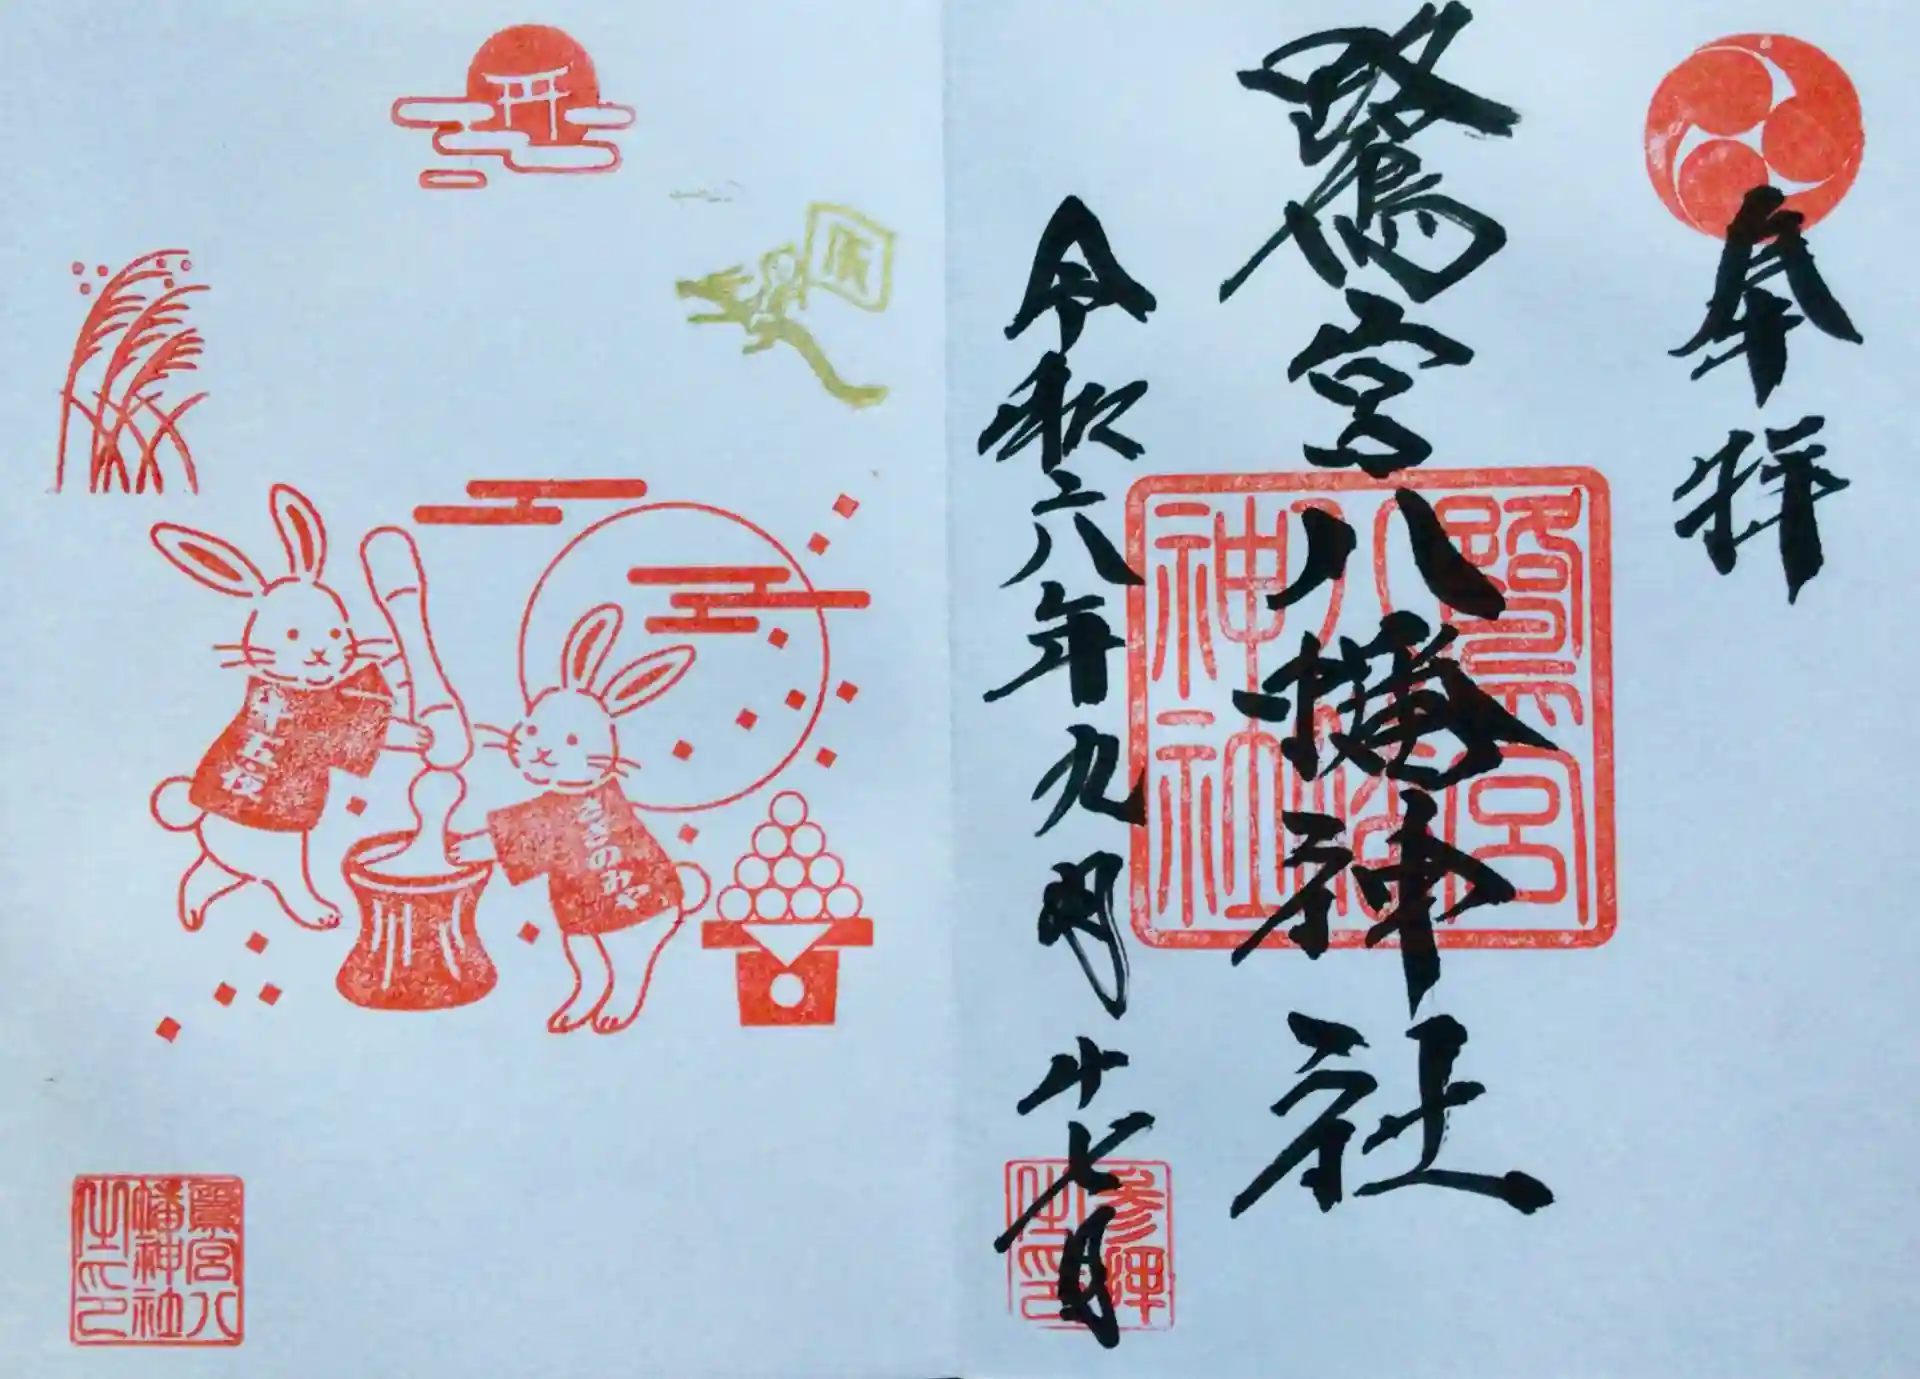 奉拝
鷺宮八幡神社
令和六年九月廿七日
鷺宮
八幡
神社
参拝
之印
十五夜
さぎのみや
鷺宮八
幡神社
之印